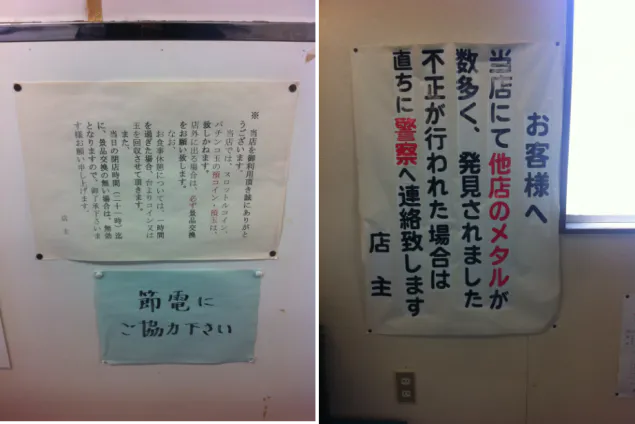 ※
当店を御利用頂き誠にありがと
うございます。
当店では、スロットルコイン、
パチンコ玉の預コイン・預玉は、
致しかねます。
店外に出る場合は、必ず景品交換
をお願い致します。
なお、
お食事休憩については、一時間
を過ぎた場合、台よりコイン又は
玉を回収させて頂きます。
また、
当日の閉店時間(二十一時)迄
に、景品交換の無い場合は、無効
となりますので、御了承下さいま
す様お願い申し上げます。
店主
節電に
ご協力下さい
お客様へ
当店にて他店のメタルが
数多く、発見されました
不正が行われた場合は
直ちに警察へ連絡致します
店主